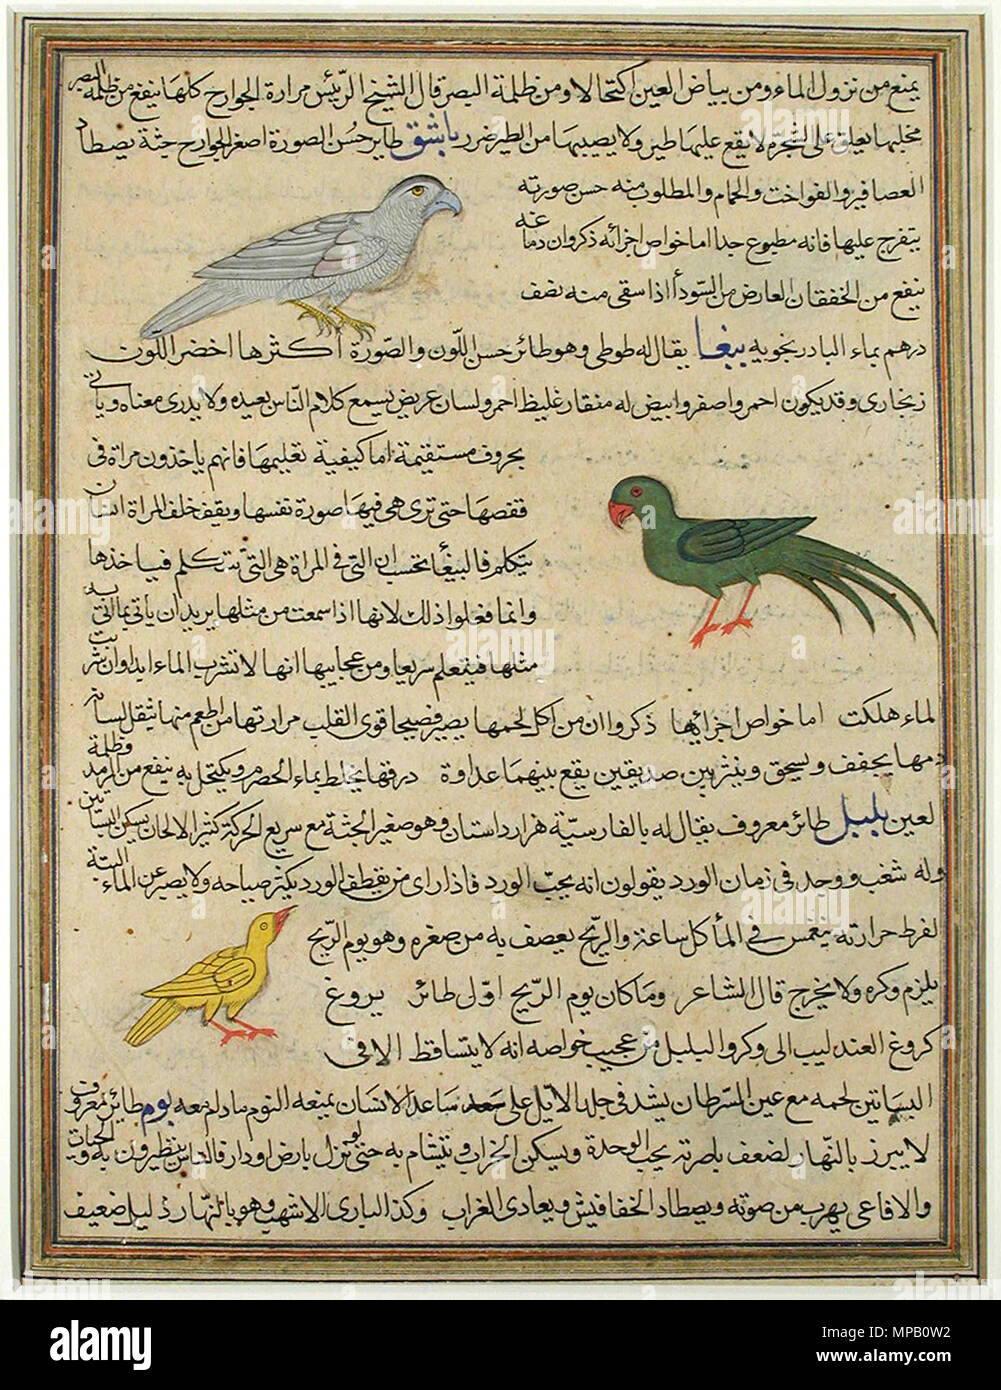 يمنع من نزول الماء ومن بياض العين اكتحالا ومن ظلمة البصر قال الشيخ الرئيس مرارة الجوارح كلها ينفع من ظلمة البصر
مخلبها يعلق على الشجرة لا يقع عليها طير ولا يصيبها من الطير ضرر باشق طاير حسن الصورة اصغر الجوارح جثة يصطاد
العصافير والفواخت والحمام والمطلوب منه حسن صورته
يتفرج عليها فانه مطبوع جدا اما خواص اجزائه ذكروا ان دماغه
ينفع من الخفقان العارض من السودأ اذا سقى منه نصف
درهم بماء البادرنجويه ببغا يقال له طوطى وهو طائر حسن اللون والصورة اكثرها اخضر اللون
زنجارى وقد يكون احمر واصفر وابيض له منقار غليظ احمر ولسان عريض يسمع كلام الناس يعيده ولا يدرى معناه وياتى
بحروف مستقيمة اما كيفية تعليمها فانهم ياخذون مراة فى
قفصها حتى ترى هى فيها صورة نفسها ويقف خلف المراة انسان
يتكلم فالببغأ تحسب ان التى فى المراة هى التى تتكلم فياخذها
وانما فعلوا ذلك لانها اذا سمعت من مثلها يريد ان ياتى بما اتى به
مثلها فيتعلم سريعا ومن عجايبها انها لا تشرب الماء ابدا وان شربت
الماء هلكت اما خواص اجزائها ذكروا ان من اكل لحمها يصير فصيحا قوى القلب مرارتها من اطعم منها ثقل لسانه
دمها يجفف ويسحق وينثر بين صديقين يقع بينهما عداوة درقها يخلط بماء الحصرم ويكتحل به ينفع من الرمد وظلمة
العين بلبل طائر معروف يقال له بالفارسية هزار داستان وهو صغير الجثة مع سريع الحركة كثير الالحان يسكن البساتين
وله شغب ووجد فى زمان الورد يقولون انه يحب الورد فاذا راى من يقطف الورد يكثر صياحه ولا يصير عن الماء البتة
لفرط حرارته ينغمس في الماء كل ساعة والريح يعصف به من صغره وهو يوم الريح
يلزم وكره ولا يخرج قال الشاعر وما كان يوم الريح اول طائر يروغ
كروغ العندليب الى وكر والبلبل من عجيب خواصه انه لا يتساقط الا فى
البساتين لحمه مع عين السرطان يشد فى جلد الايل على ساعد الانسان يمنعه النوم ما دام معه بوم طائر معروف
لا يبرز بالنهار لضعف باصرته يحب الوحدة ويسكن الخراب ويتشام به حتى لو نزل بارض او دار فالناس يتطيرون به
والافاعى يهرب من صوته ويصطاد الخفافيش ويعادى الغراب وكذا البازى الاشهب وهو بالنهار ذليل ضعيف
alamy
Image ID: MPB0W2
www.alamy.com